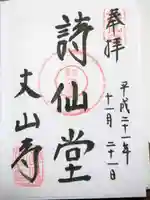 奉拝
平成二十一年
十一月二十一日
詩仙堂
丈山寺